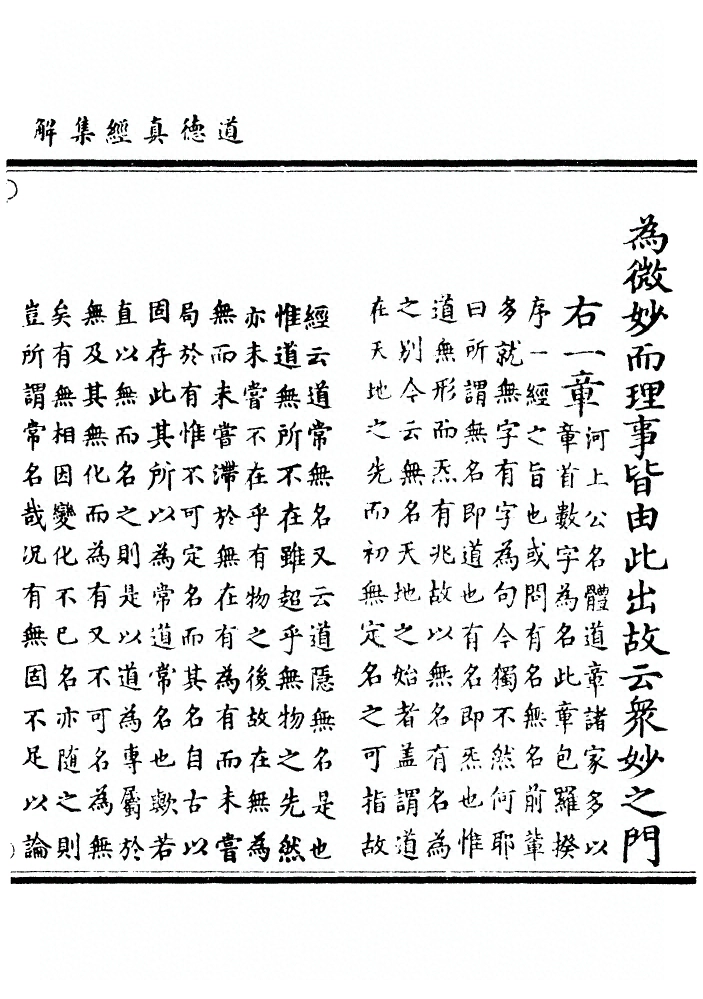 道德真經集解
為微妙而理事皆由此出故云眾妙之門
右一章
河上公名體道章諸家多以
章首數字為名此章包羅揆
序一經之旨也或問有名無名前輩
多就無字有字為句今獨不然何耶
曰所謂無名即道也有名即炁也惟
道無形而炁有兆故以無名有名為
之別今云無名天地之始者盖謂道
在天地之先而初無定名之可指故
經云道常無名又云道隱無名是也
惟道無所不在雖超乎無物之先然
亦未嘗不在乎有物之後故在無為
無而未嘗滯於無在有為有而未嘗
局於有惟不可定名而其名自古以
固存此其所以為常道常名也歟若
直以無而名之則是以道為專屬於
無及其無化而為有又不可名為無
矣有無相因變化不已名亦随之則
豈所謂常名哉况有無固不足以論